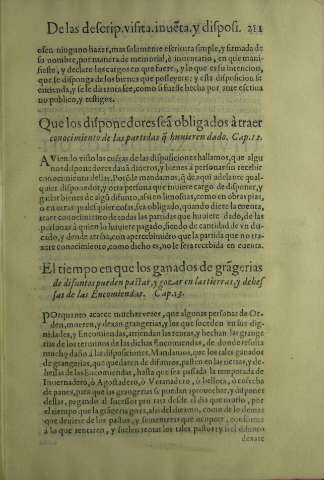 De las descrip. visita. inuēta. y disposi. 211
osen ninguno hazer, mas solamente escritura simple, y firmada de
su nombre, por manera de memorial, ò inuentario, en que mani-
fieste, y declare los cargos en que fuere, y lo que es su intencion,
que se disponga de los bienes que posseyere: y esta disposicion se
entienda, y se le dà tanta fee, como si fuesse hecha por ante escriua
no publico, y testigos.
Que los disponedores seã obligados à traer
conocimiento de las partidas q̃ huuieren dado. Cap. 12.
AVien lo visto las cuētas de las disposiciones hallamos, que algu
nos disponedores dauã dineros, y bienes à personas sin recebir
conocimiento dellas. Porẽde mandamos, q̃ de aqui adelante qual-
quier disponedor, y otra persona que tuuiere cargo de disponer, y
gastar bienes de algũ difunto, assi en limosnas, como en obras pias,
o en otras qualesquier cosas, sea obligado, quando diere la cuenta,
traer conocimiento de todas las partidas que huuiere dado, de las
personas à quien lo huuiere pagado, siendo de cantidad de vn du-
cado, y dende arriba, con apercebimiēto que la partida que no tra-
xere conocimiento, como dicho es, no le serà recebida en cuenta.
El tiempo en que los ganados de grãgerias
de difuntos pueden pastar, y gozar en las tierras, y dehes
sas de las Encomiendas. Cap. 13.
POrquanto acaece muchas vezes, que algunas personas de Or-
den, mueren, y dexan grangerias, y los que suceden en sus dig-
nidades, y Encomiendas, arriendan las rentas, y hechan las grange
rias de los terminos de las dichas Encomiendas, de donde resulta
mucho daño à las disposiciones. Mandamos, que los tales ganados
de grangerias, que quedaren de difuntos, pasten en las tierras, y de-
hessas de las Encomiendas, hasta que sea passada la temporada de
Inuernadero, ò Agostadero, ò Veranadero, ò bellota, o cosecha
de panes, para que las grangerias se puedan aprouechar, y disponer
dellas, pagando al sucessor pro rata desde el dia que murio, por
el tiempo que la grãgeria goza, assi del diezmo, como de lo demas
que deuiere de los pastos, y sementeras que ocupare, conforme
à lo que rentaren, y suelen rentar los tales pastos: y si el difunto